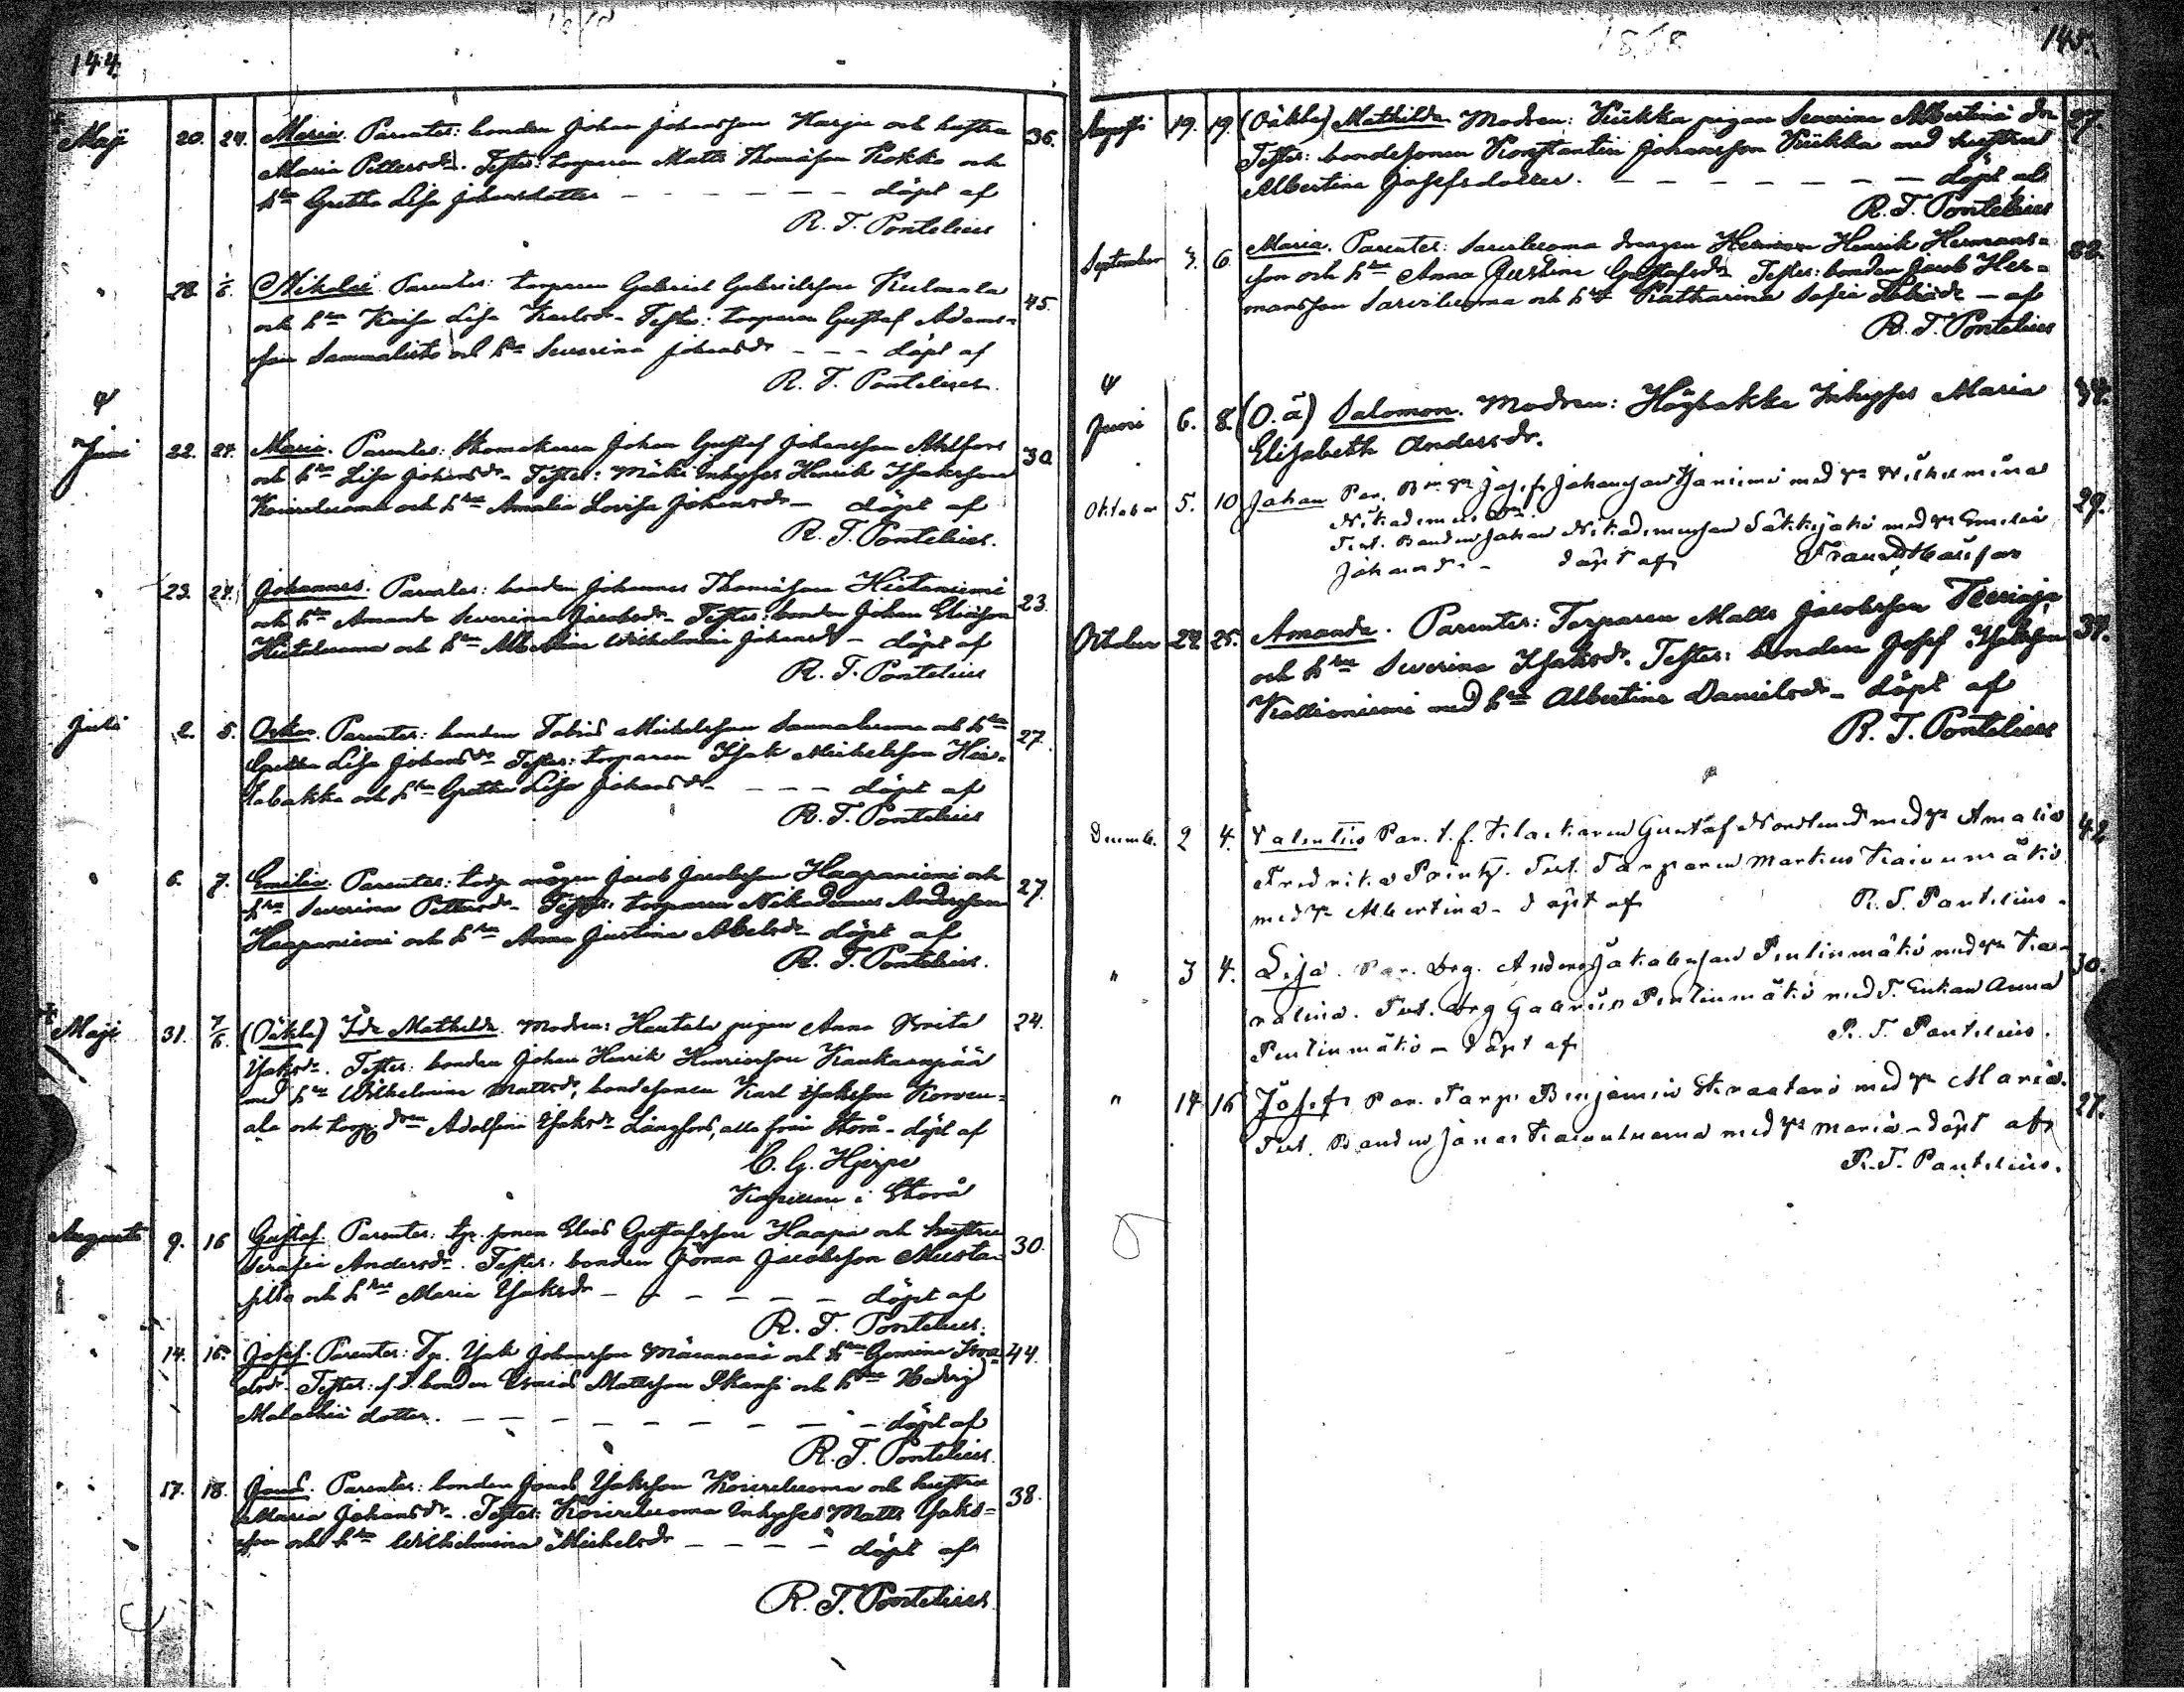 144.
Maji 20. 24. Maria. Parentes: bonden Johan Johansson Harju och hustru 36.
Maria Pettersdr. Testes: torparen Matts Thomasson Kokko och
hru Gretha Lisa Johansdotter — — — — — — döpt af
R. T. Pontelius
" 28. 1/6. Nikolai. Parentes: torparen Gabriel Gabrielsson Kulmala 45.
och hru Kaisa Lisa Karlsdr. Testes: torparen Gustaf Adams-
son Sammalisto och hru Severina Johansdr — — — döpt af
R. T. Pontelius.
Juni 22. 24. Maria. Parentes: Skomakaren Johan Gustaf Johansson Ahlfors 30.
och hru Lisa Johansdr. Testes: Mäki Inhyses Henrik Isaksson
Koiraluoma och hru Amalia Lovisa Johansdr — döpt af
R. T. Pontelius.
" 23. 24. Johannes. Parentes: bonden Johannes Thomasson Hietaniemi 23.
och hru Amanda Severina Jacobsdr. Testes: bonden Johan Eliasson
Hietaluoma och hru Albertina Wilhelmina Johansdr — döpt af
R. T. Pontelius
Juli 2. 5. Oskar. Parentes: bonden Tobias Michelsson Saunaluoma och hru 27.
Gretha Lisa Johansdr. Testes: torparen Isak Michelsson Hie-
tabakka och hru Gretha Lisa Johansdr — — — döpt af
R. T. Pontelius
" 6. 7. Emilia. Parentes: torp. mågen Jacob Jacobsson Haapaniemi och 27.
hru Severina Pettersdr. Testes: torparen Nikodemus Andersson
Haapaniemi och hru Anna Justina Abelsdr — döpt af
R. T. Pontelius.
Maji 31. 7/6. (Oäkta) Ida Mathilda. Modren: Hautala pigan Anna Brita 24.
Isaksdr. Testes: bonden Johan Henrik Henriksson Kankaanpää
med hru Wilhelmina Mattsdr, bondesonen Karl Isaksson Korven-
ala och torp. drn Adolfina Isaksdr Långfors, alla från Storå — döpt af
C. G. Hjerpe
Kapellan i Storå
Augusti 9. 16 Gustaf. Parentes: tp. sonen Elias Gustafsson Haapa och hustru 30.
Serafia Andersdr. Testes: bonden Göran Jacobsson Musta-
silta och hru Maria Isaksdr — — — — — — döpt af
R. T. Pontelius.
" 14. 15. Josef. Parentes: Tp. Isak Johansson Mäenenä och hru Gemina 44.
Testes: f. d. bonden Esaias Mattsson Skansi och hru Hedvig
Malachiä dotter. — — — — — — — — — döpt af
R. T. Pontelius
17. 18. Jonas. Parentes: bonden Jonas Isaksson Koiraluoma och hustru 38.
Maria Johansdr. Testes: Koiraluoma Inhyses Matts Isaks-
son och hru Wilhelmina Michelsdr — — — — döpt af
R. T. Pontelius
1868 145.
Augusti 19. 19. (Oäkta) Mathilda. Modren: Kiikka pigan Severina Albertina 27.
Testes: bondesonen Konstantin Johansson Kiikka med hustru
Albertina Josefsdotter. — — — — — — — döpt af
R. T. Pontelius
September 3. 6. Maria. Parentes: Sarviluoma drengen Herman Henrik Hermans-
son och hru Anna Justina Gustafsdr. Testes: bonden Jacob Her-
mansson Sarviluoma och hru Katharina Sofia — af
R. T. Pontelius
Juni 6. 8. (O.ä) Salomon. Modren: Högbakka Inhyses Maria
Elisabeth Andersdr.
Oktober 5. 10 Johan Par. Josef Johansson Ojaniemi med hu Wilhelmina 29.
Nikodemusdr.
Test. Bonden Johan Nikodemusson Säkkijoki med hu Emelia
Johansdr. — döpt af
Oktober 22. 25. Amanda. Parentes: Torparen Matts Jacobsson 37.
och hru Severina Isaksdr. Testes: bonden Josef Isaksson
Kallioniemi med hru Albertina Danielsdr — döpt af
R. T. Pontelius
Decemb. 2 4. Valentin Par. t.f. Klockaren Gustaf Nordlund med hu Amalia 42
Fredrika Printz. Test. Torparen Markus Koivumäki
med hu Albertina — döpt af R. T. Pontelius.
" 3 4. Lisa. Par. Drg. Anders Jakobsson Pentinmäki med hu Ka- 30.
rolina. Test. drg Gabriel Pentinmäki med T. Enkan Anna
Pentinmäki — döpt af R. T. Pontelius.
" 14 16 Josef. Par. Torp. Benjamin med hu Maria. 27.
Test. Bonden Jonas Koivuluoma med hu Maria — döpt af
R. T. Pontelius.